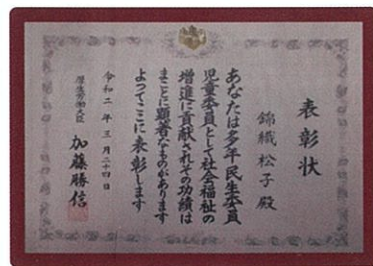 表彰状
錦織松子殿
あなたは多年民生委員
児童委員として社会福祉の
増進に貢献されその功績は
まことに顕著なものがあります
よってここに表彰します
令和二年三月二十四日
厚生労働大臣
加藤勝信